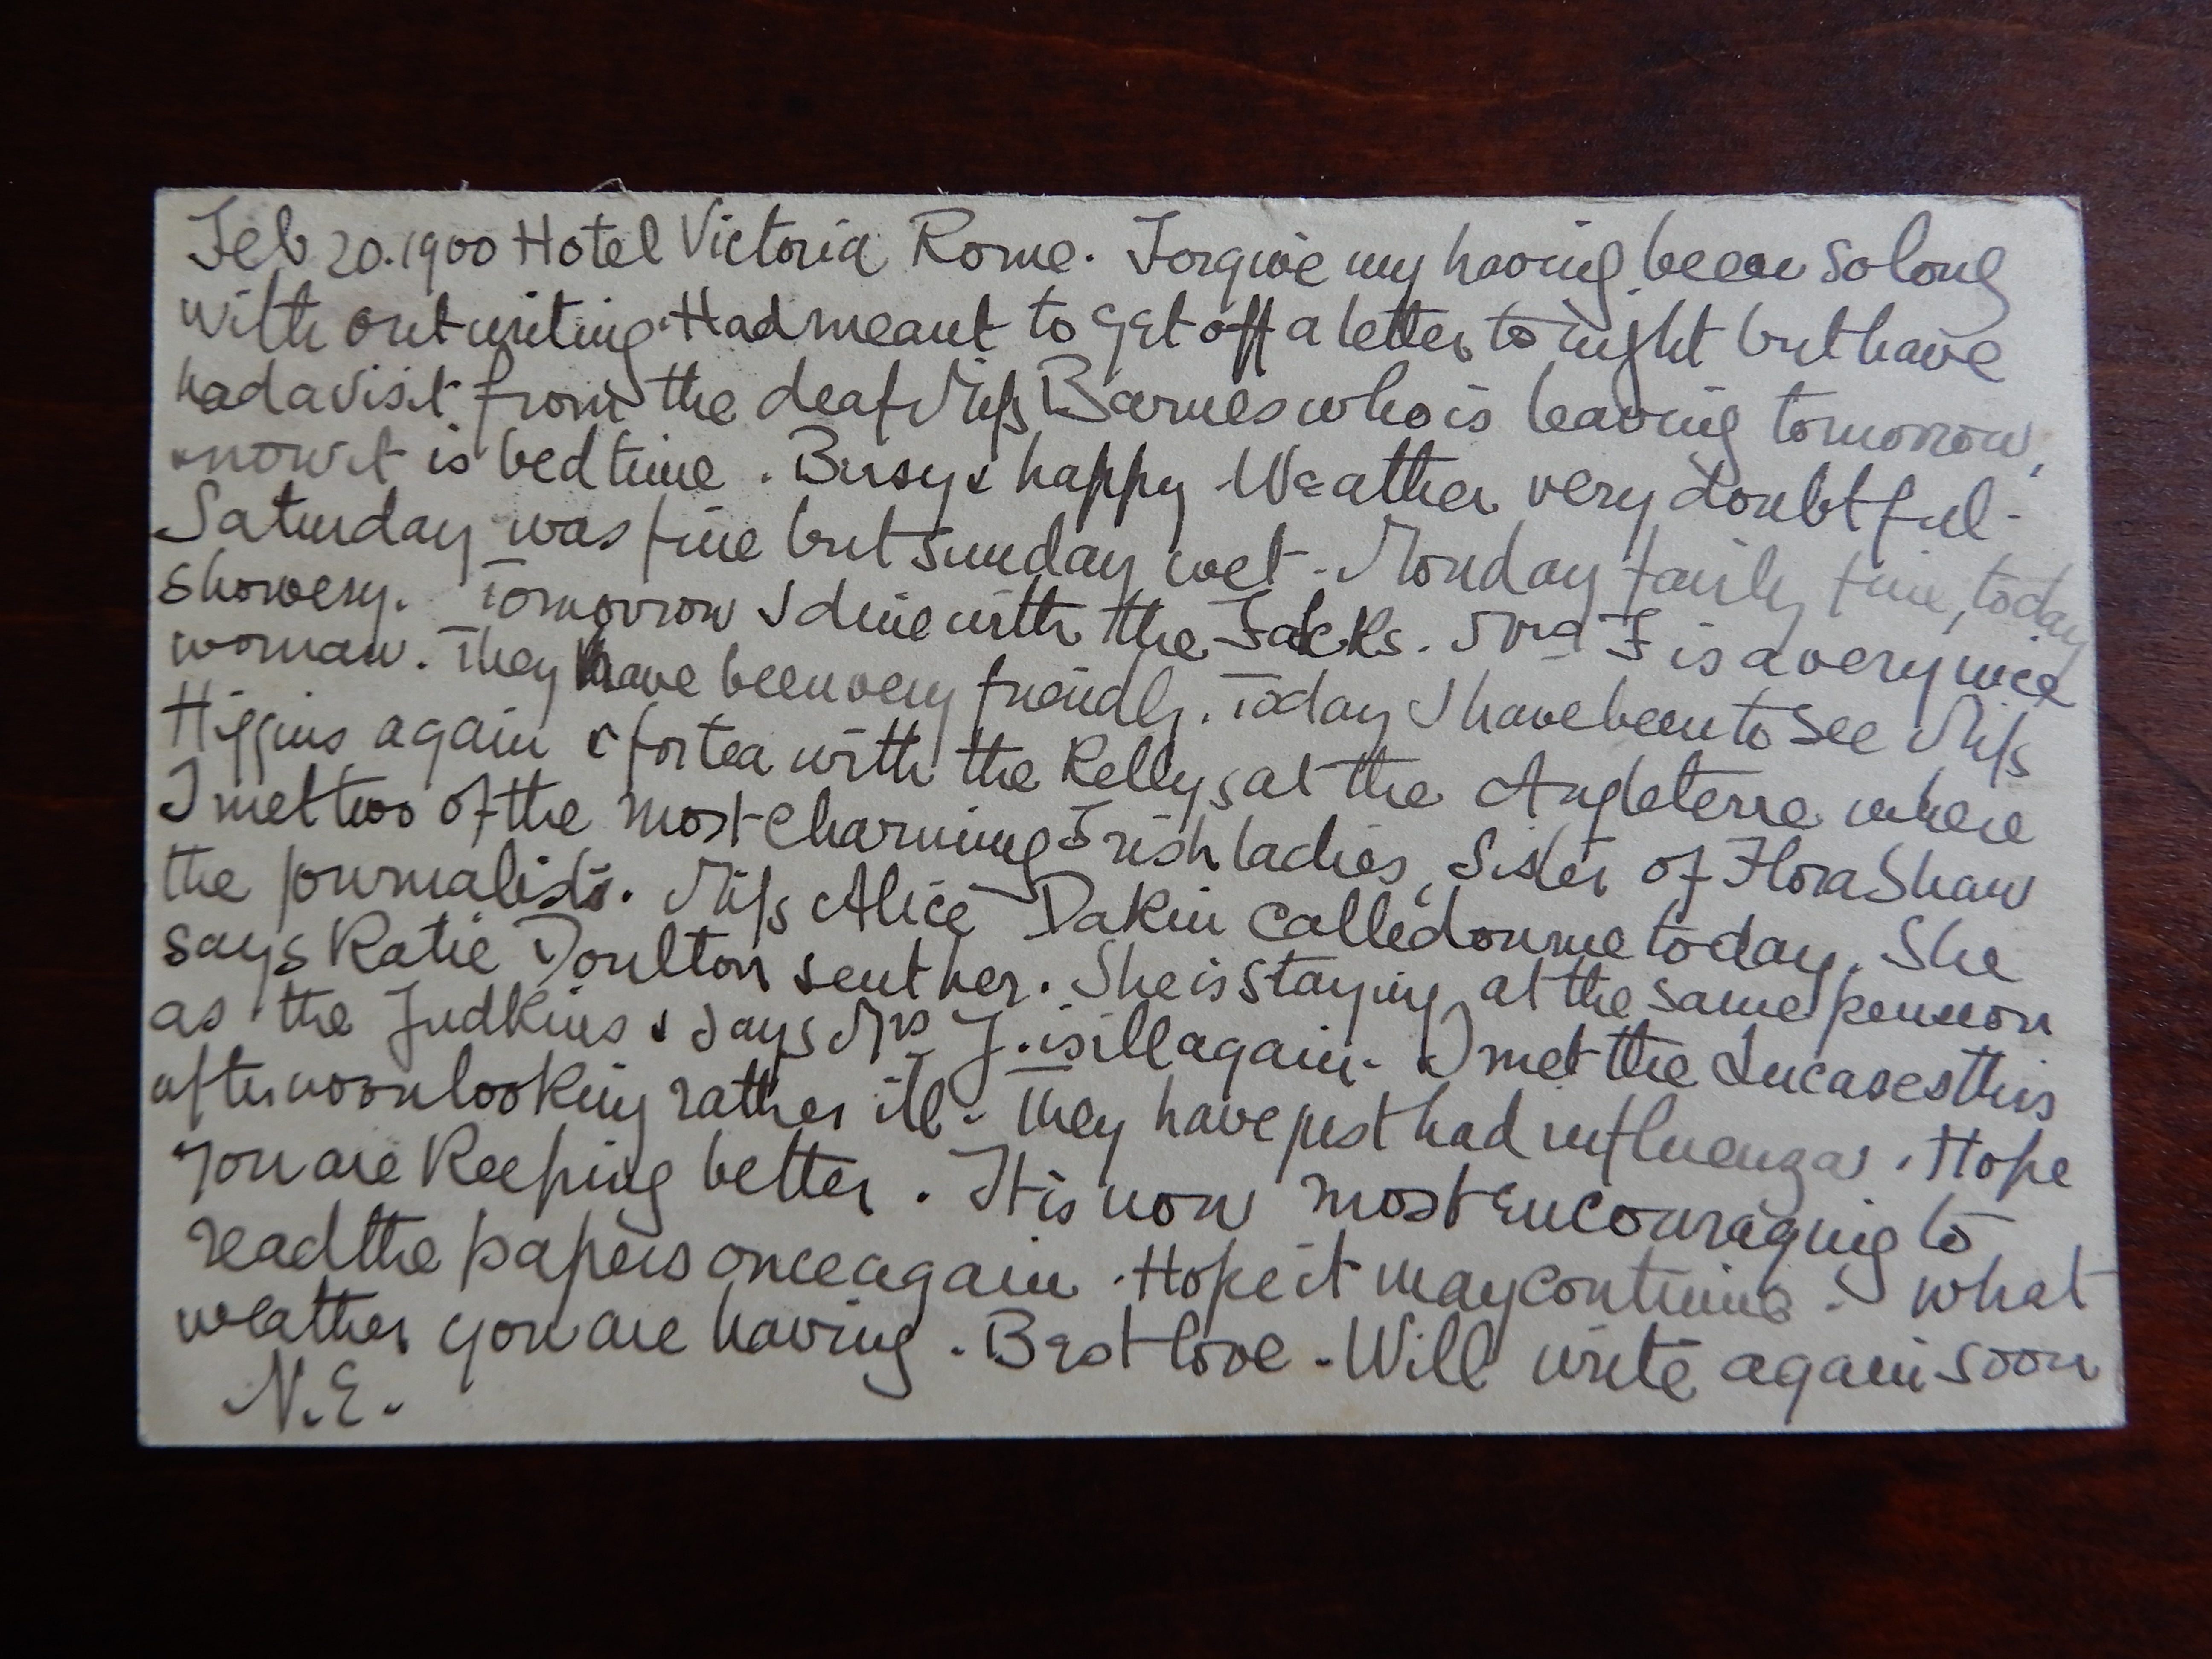 Feb 20.1900 Hotel Victoria Rome. Forgive my having been so long
without writing. Had meant to get off a letter to night but have
had a visit from the deaf Miss Barnes who is leaving tomorrow,
now it is bedtime. Busy & happy Weather very doubtful -
Saturday was fine but Sunday wet - Monday fairly fine, today
showery. Tomorrow I dine with the . Mrs F is a very nice
woman. They have been very friendly. Today I have been to see Miss
Higgins again & for tea with the Kellys at the Angleterre where
I met two of the most charming Irish ladies, Sister of Flora Shaw
the journalist. Miss Alice Dakin called on me today. She
says Katie Doulton sent her. She is staying at the same pension
as the Judkins & says Mrs J. is ill again. I met the Lucases this
afternoon looking rather ill. They have just had influenza. Hope
you are keeping better. It is now most encouraging to
read the papers once again. Hope it may continue. what
weather you are having. Best love. Will write again soon
N.E.